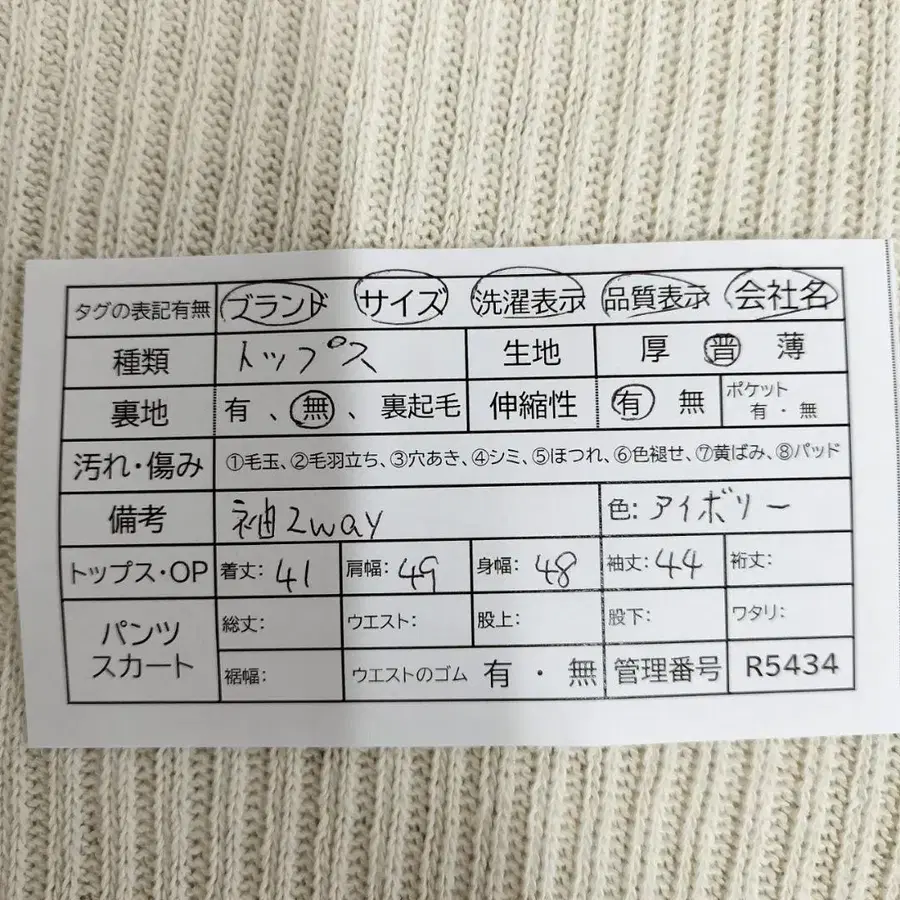 タグの表記有無 ブランド サイズ 洗濯表示 品質表示 会社名
種類 トップス 生地 厚 普 薄
裏地 有、無、裏起毛 伸縮性 有 無 ポケット 有・無
汚れ・傷み ①毛玉、②毛羽立ち、③穴あき、④シミ、⑤ほつれ、⑥色褪せ、⑦黄ばみ、⑧パッド
備考 袖2way 色: アイボリー
トップス・OP 着丈: 41 肩幅: 49 身幅: 48 袖丈: 44 裄丈:
パンツ スカート 総丈: ウエスト: 股上: 股下: ワタリ:
裾幅: ウエストのゴム 有・無 管理番号 R5434